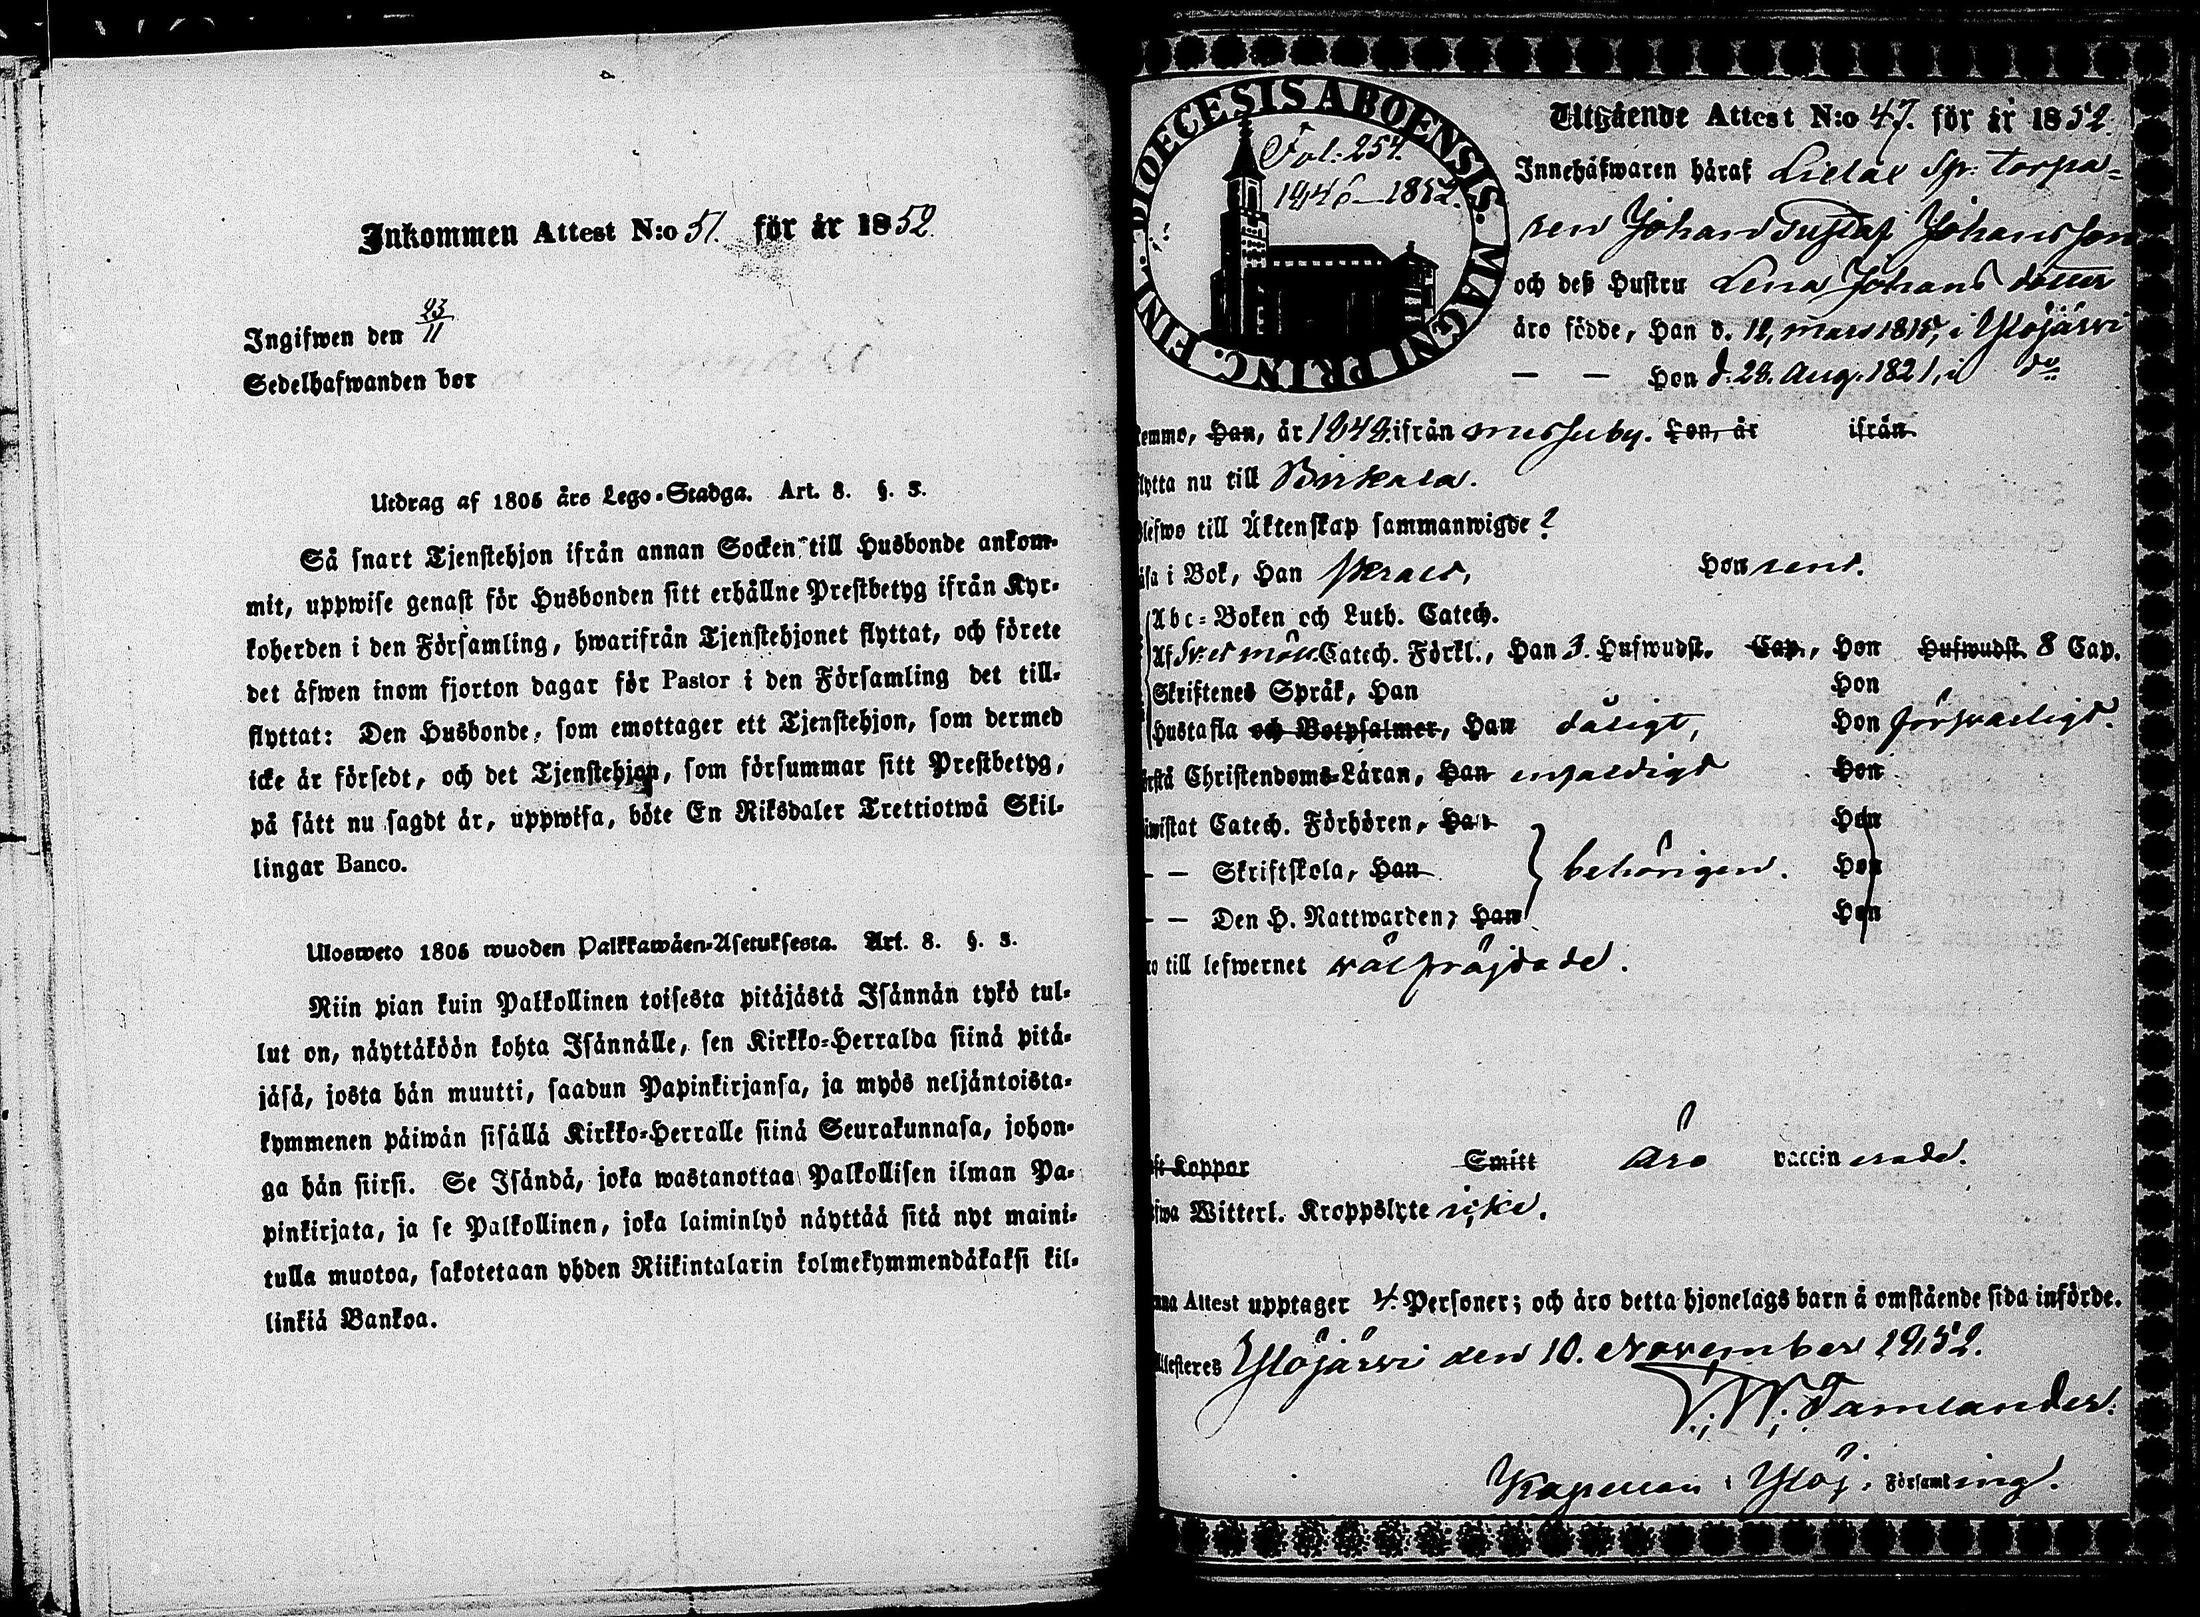 Inkommen Attest N:o 51. för år 1852.
Ingifwen den 23/11
Sedelhafwanden bor
Utdrag af 1805 års Lego-Stadga. Art. 8. §. 3.
Så snart Tjenstehjon ifrån annan Socken till Husbonde ankom-
mit, uppwise genast för Husbonden sitt erhållne Prestbetyg ifrån Kyr-
koherden i den Församling, hwarifrån Tjenstehjonet flyttat, och förete
det äfwen inom fjorton dagar för Pastor i den Församling det till-
flyttat: Den Husbonde, som emottager ett Tjenstehjon, som dermed
icke är försedt, och det Tjenstehjon, som försummar sitt Prestbetyg,
på sätt nu sagdt är, uppwisa, böte En Riksdaler Trettiotwå Skil-
lingar Banco.
Ulosweto 1805 wuoden Palkkawäen-Asetuksesta. Art. 8. §. 3.
Niin pian kuin Palkollinen toisesta pitäjästä Isännän tykö tul-
lut on, näyttäköön kohta Isännälle, sen Kirkko-Herralda siinä pitä-
jäsä, josta hän muutti, saadun Papinkirjansa, ja myös neljäntoista-
kymmenen päiwän sisällä Kirkko-Herralle siinä Seurakunnasa, johon-
ga hän siirsi. Se Isändä, joka wastanottaa Palkollisen ilman Pa-
pinkirjata, ja se Palkollinen, joka laiminlyö näyttää sitä nyt maini-
tulla muotoa, sakotetaan yhden Riikintalarin kolmekymmendäkaksi kil-
linkiä Bankoa.
DIOECESIS ABOENSIS. MAGNI PRINC. FINL.
Fol: 254.
1846–1852.
Utgående Attest N:o 47. för år 1852.
Innehafwaren häraf Torpa-
ren Johan Gustaf Johansson
och deß Hustru Lena Johans dotter
äro födde, Han d. 12, mars 1815, i Ylöjärvi
— — Hon d. 28. Aug. 1821, i do
kemmo, Han, år 1849. ifrån Messuby. Hon, år ifrån
flytta nu till Birkala.
blefwo till Äktenskap sammanwigde ?
läsa i Bok, Han svagt, Hon rent.
Abc-Boken och Luth. Catech.
Af Catech. Förkl., Han 3. Hufwudst. Cap., Hon Hufwudst. 8 Cap.
Skriftenes Språk, Han Hon
Hustafla och Botpsalmer, Han dåligt, Hon försvarligt.
förstå Christendoms-Läran, Han enfaldigt Hon
biwistat Catech. Förhören, Han Hon
— — Skriftskola, Han } behörigen. Hon
— — Den H. Nattwarden, Han Hon
äro till lefwernet välfräjdade.
haft Koppor Smitt Äro vaccinerade.
hafwa Witterl. Kroppslyte icke.
Denna Attest upptager 4. Personer; och äro detta hjonelags barn å omstående sida införde.
Attesteres Ylöjärvi den 10. November 1852.
F. W. Tamlander.
Kapellan i Ylöj. Församling.